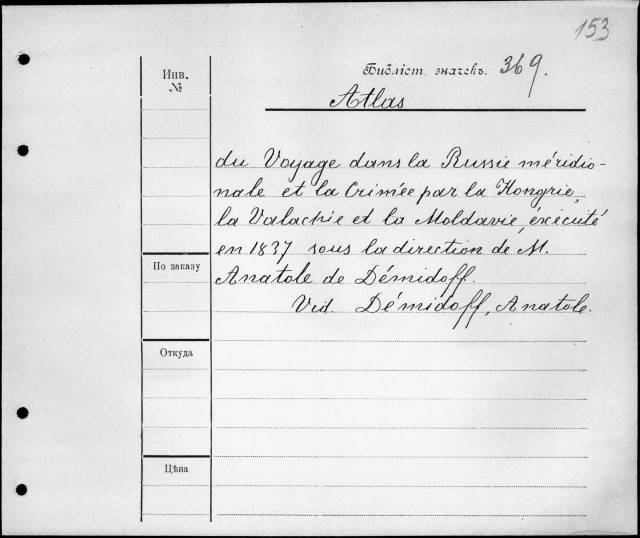 153
Инв.
№
Библіот. значекъ. 369.
Atlas
du Voyage dans la Russie méridio-
nale et la Crimée par la Hongrie,
la Valachie et la Moldavie, éxécuté
en 1837 sous la direction de M.
По заказу
Anatole de Démidoff.
Vid. Démidoff, Anatole.
Откуда
Цѣна